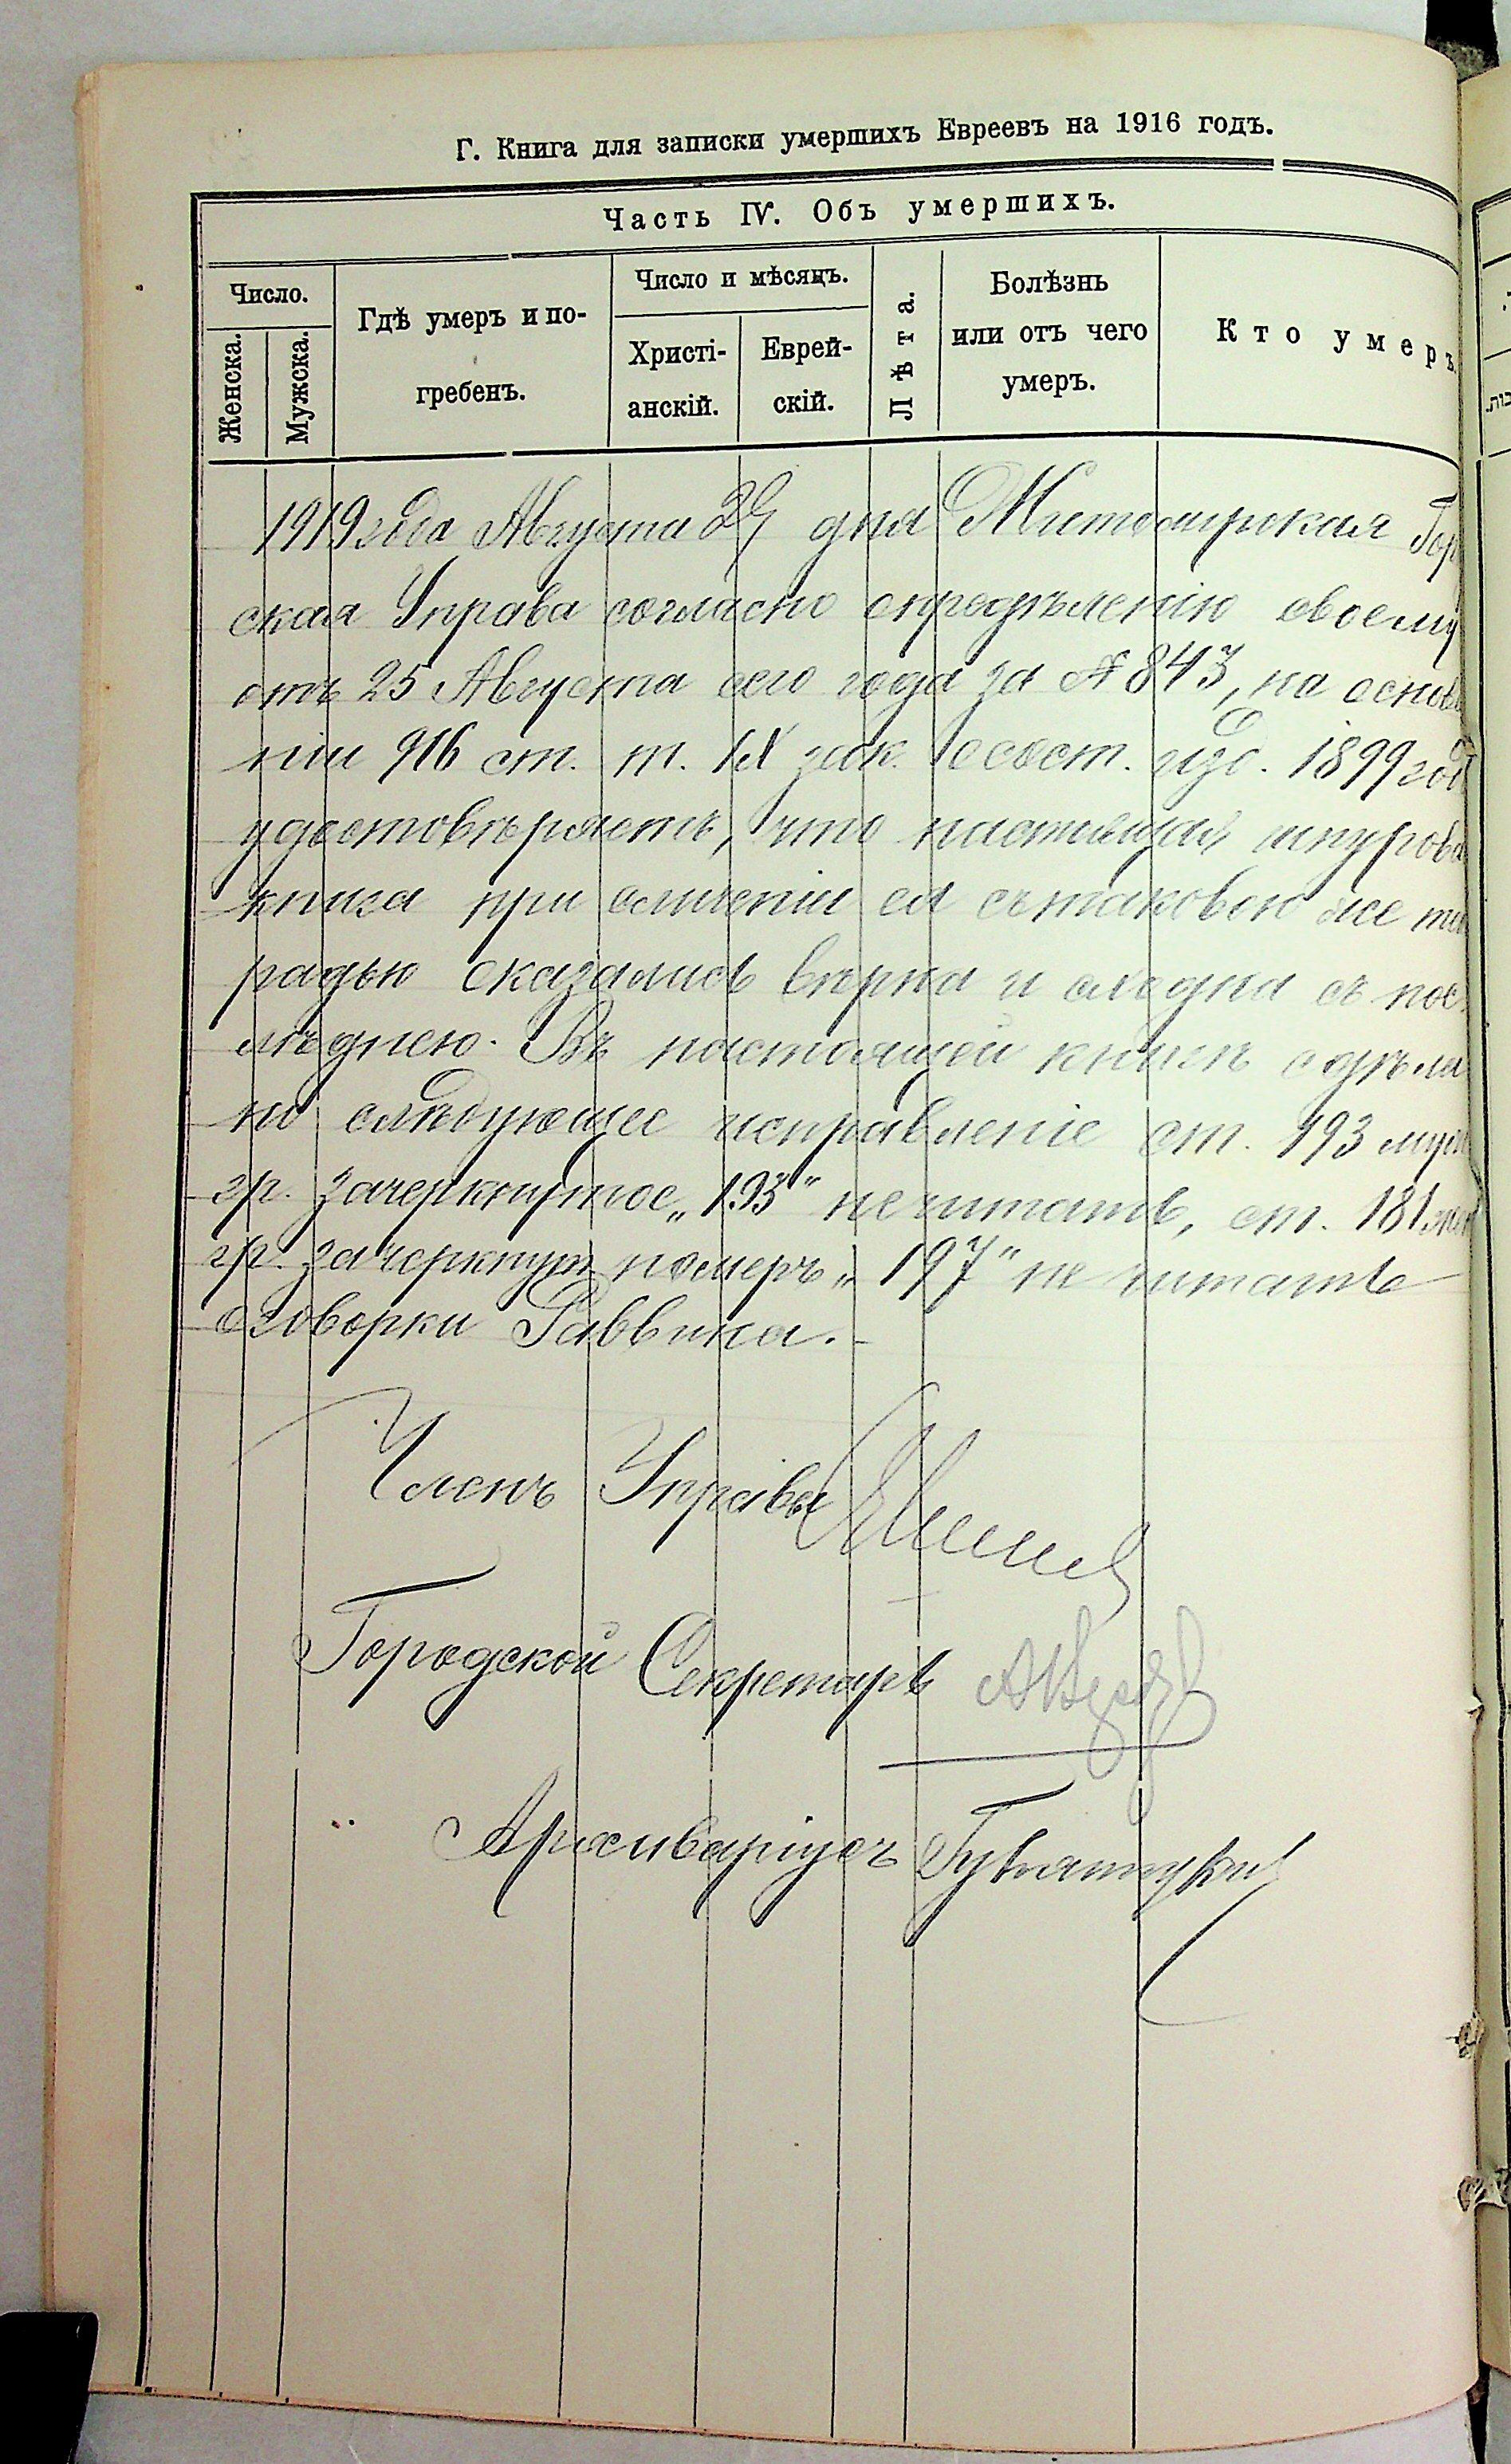 Г. Книга для записки умершихъ Евреевъ на 1916 годъ.
Часть IV. Объ умершихъ.
Число.
Женска.
Мужска.
Гдѣ умеръ и по-
гребенъ.
Число и мѣсяцъ.
Христі-
анскій.
Еврей-
скій.
Лѣта.
Болѣзнь
или отъ чего
умеръ.
Кто умеръ.
1919 года Августа дня Житомирская Гор
ская Управа согласно опредѣленію своему
отъ 25 Августа сего года за № 843, на основа
ніи 916 ст. т. IX зак. о сост. изд. 1899 год
удостовѣряетъ, что настоящая шнурова
книга при сличеніи ея съ таковою же те
радью оказалась вѣрна и сходна съ пос
лѣднею. Въ настоящей книгѣ сдѣла
но слѣдующее исправленіе ст. 193 муж
гр. зачеркнутое „193" не читать, ст. 181 жен
гр. зачеркнут номеръ „197" не читать
оговорки Раввина.
Членъ Управы
Городской Секретарь
Архиваріусъ